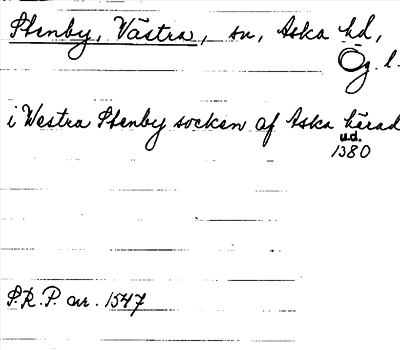 Stenby, Västra, sn, Aska hd,
Ög. l.
i Westra Stenby socken af Aska härad
u.d.
1380
S.R.P. nr. 1547